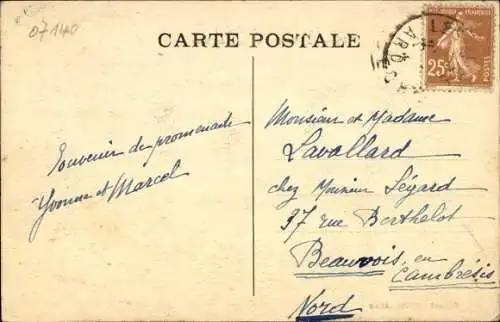 07140
CARTE POSTALE
25c
POSTES
ARD
Souvenir de promenade
Yvonne et Marcel
Monsieur et Madame
Lavallard
chez Monsieur Légard
37 rue Berthelot
Beauvois en
Cambrésis
Nord